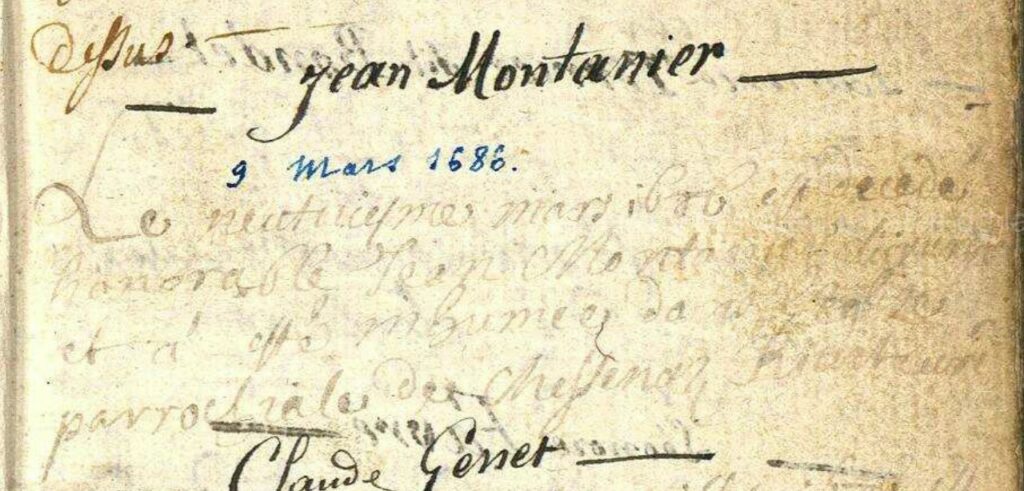 dessus
Jean Montanier
9 Mars 1686.
Le neufuiesme mars 1686 est decede
honorable Jean Montanier
et a esté inhumé dans
parrochiale de Chessenaz
Claude Genet